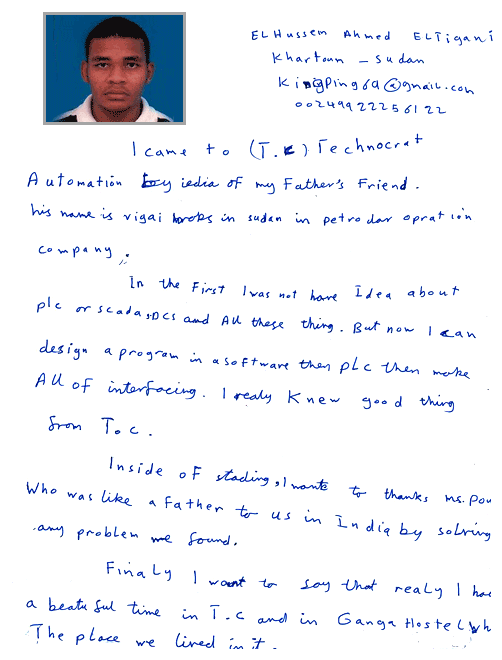 ELHussem Ahmed ELTigani
Khartoum - Sudan
KingPing69@gmail.com
00249922256122
I came to (T.C) Technocrat
Automation by iedia of my Father's Friend.
his name is vigai works in sudan in petrodar opration
company.
In the First I was not have Idea about
plc or scada, DCS and All these thing. But now I can
design a program in a software then PLC then make
All of interfacing. I realy Knew good thing
from T.C.
Inside of stading, I want to thanks ms. Pou
Who was like a Father to us in India by solving
any problem we found.
Finaly I want to say that realy I ha
a beatuful time in T.C and in Ganga Hostel wh
The place we lived in it.